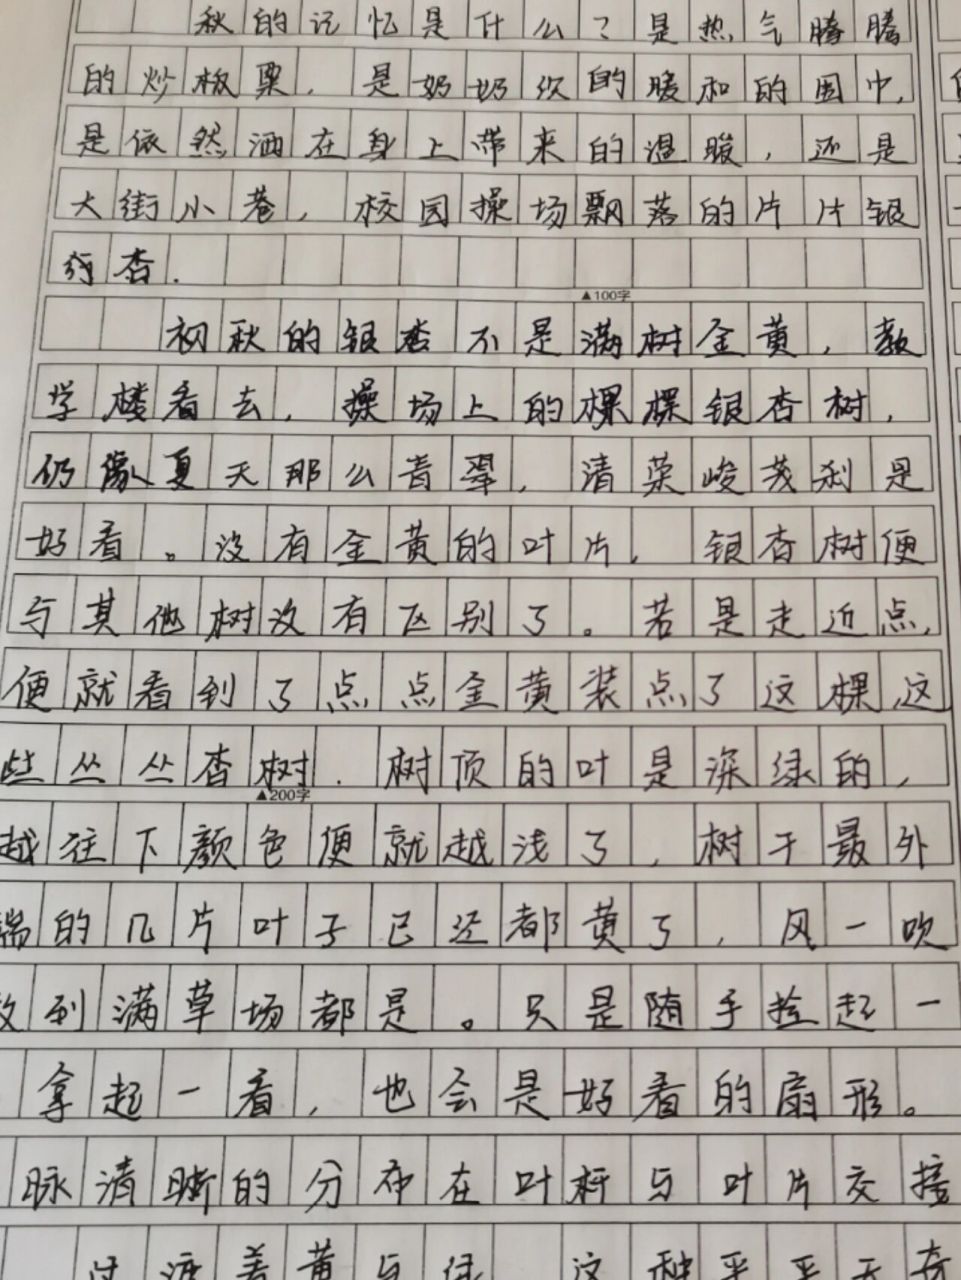 秋的记忆是什么？是热气腾腾
的炒板栗，是奶奶织的暖和的围巾，
是依然洒在身上带来的温暖，还是
大街小巷，校园操场飘落的片片银
杏.
▲100字
初秋的银杏不是满树金黄，教
学楼看去，操场上的棵棵银杏树，
仍像夏天那么青翠，清荣峻茂刹是
好看。没有金黄的叶片，银杏树便
与其他树没有区别了。若是走近点，
便就看到了点点金黄装点了这棵，这
些丛丛杏树.树顶的叶是深绿的，
▲200字
越往下颜色便就越浅了，树干最外
端的几片叶子已还都黄了，风一吹
到满草场都是。只是随手捡起一
拿起一看，也会是好看的扇形。
脉清晰的分布在叶杆与叶片交接
黄与绿 这种平平无奇